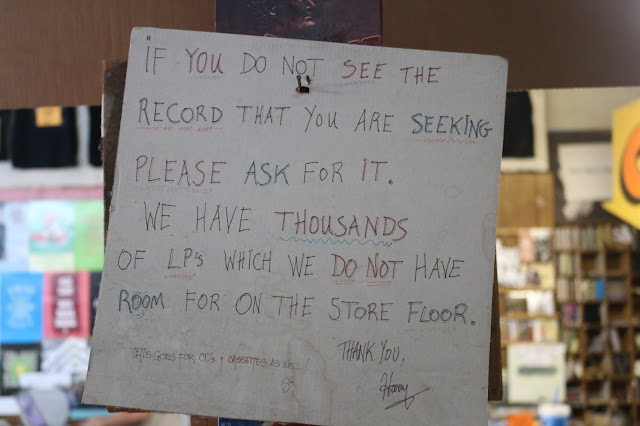 iF YOU DO NOT SEE THE
RECORD THAT YOU ARE SEEKING
PLEASE ASK FOR IT.
WE HAVE THOUSANDS
OF LP's WHICH WE DO NOT HAVE
ROOM FOR ON THE STORE FLOOR.
THIS GOES FOR CD's & CASSETTES, AS WELL!
THANK YOU,